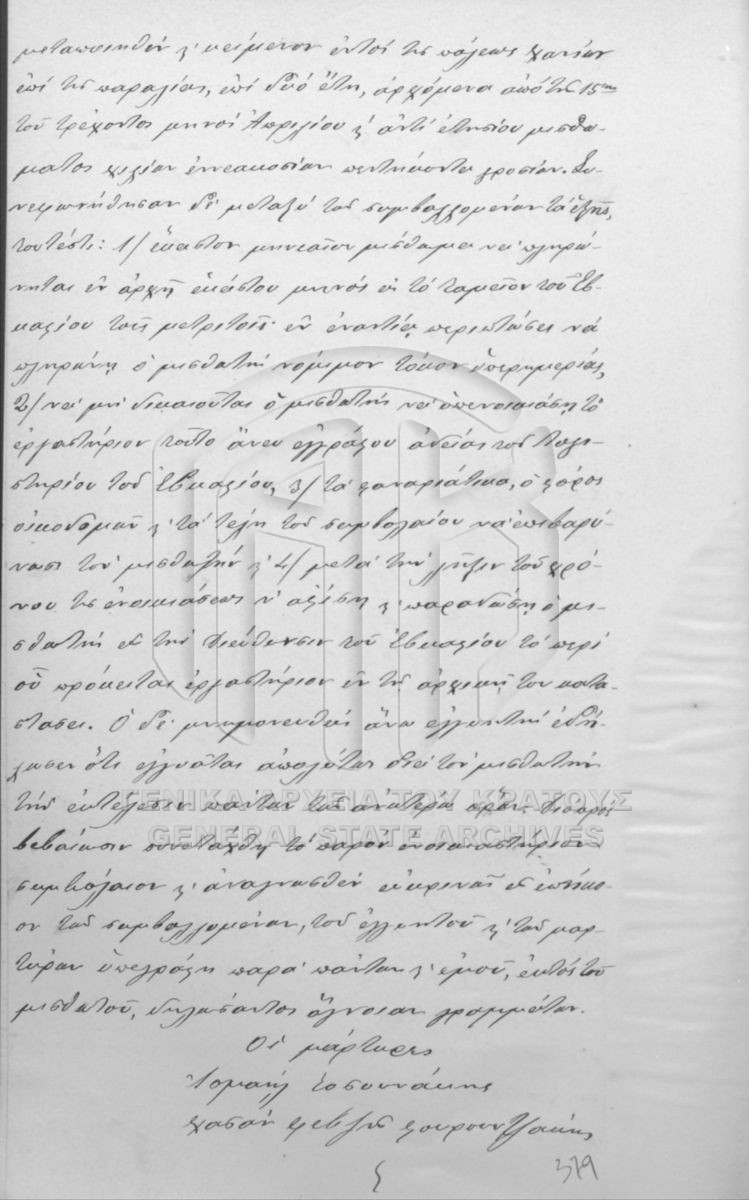 μεταποιηθέν κ' κείμενον εντός της πόλεως Χανίων
επί της παραλίας, επί δύο έτη, αρχόμενα από της 15ης
του τρέχοντος μηνός Απριλίου κ' αντί ετησίου μισθώ-
ματος χιλίων εννεακοσίων πεντήκοντα γροσίων. Συ-
νεφωνήθησαν δε μεταξύ των συμβαλλομένων τα εξής,
τουτέστι: 1/ έκαστον μηνιαίον μίσθωμα να πληρώ-
νηται εν αρχή εκάστου μηνός εις το ταμείον του Εβ-
καφίου τοις μετρητοίς εν εναντία περιπτώσει να
πληρώνη ο μισθωτής νόμιμον τόκον υπερημερίας,
2/ να μη δικαιούται ο μισθωτής να υπενοικιάση το
εργαστήριον τούτο άνευ εγγράφου αδείας του Λογι-
στηρίου του Εβκαφίου, 3/ τα φαναριάτικα, ο φόρος
οικοδομών κ' τα τέλη του συμβολαίου να επιβαρύ-
νωσι τον μισθωτήν κ' 4/ μετά την λήξιν του χρό-
νου της ενοικιάσεως ν' αφίση κ' παραδώση ο μι-
σθωτής εις την Διεύθυνσιν του Εβκαφίου το περί
ου πρόκειται εργαστήριον εν τη αρχική του κατα-
στάσει. Ο δε μνημονευθείς άνω εγγυητής εδή-
λωσεν ότι εγγυάται απολύτως δια τον μισθωτήν
την εκτέλεσιν πάντων των ανωτέρω όρων.
ΓΕΝΙΚΑ ΑΡΧΕΙΑ ΤΟΥ ΚΡΑΤΟΥΣ
GENERAL STATE ARCHIVES
βεβαίωσιν συνετάχθη το παρόν ενοικιαστήριον
συμβόλαιον κ' αναγνωσθέν ευκρινώς εις επήκο-
ον των συμβαλλομένων, του εγγυητού κ' των μαρ-
τύρων υπεγράφη παρά πάντων κ' εμού, εκτός του
μισθωτού, δηλώσαντος άγνοιαν γραμμάτων.
Οι μάρτυρες
Ισμαήλ
Χασάν
379